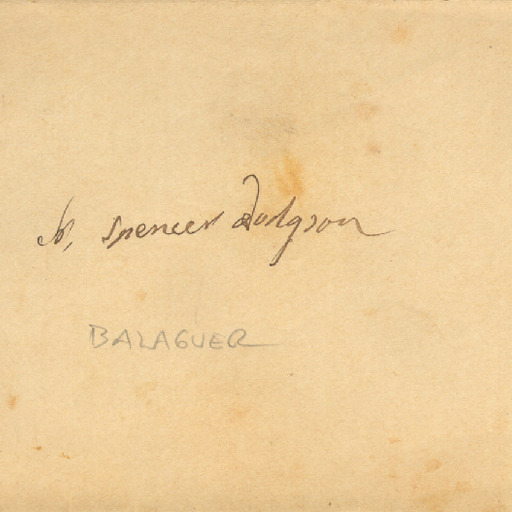 Spencer Dodgson
BALAGUER